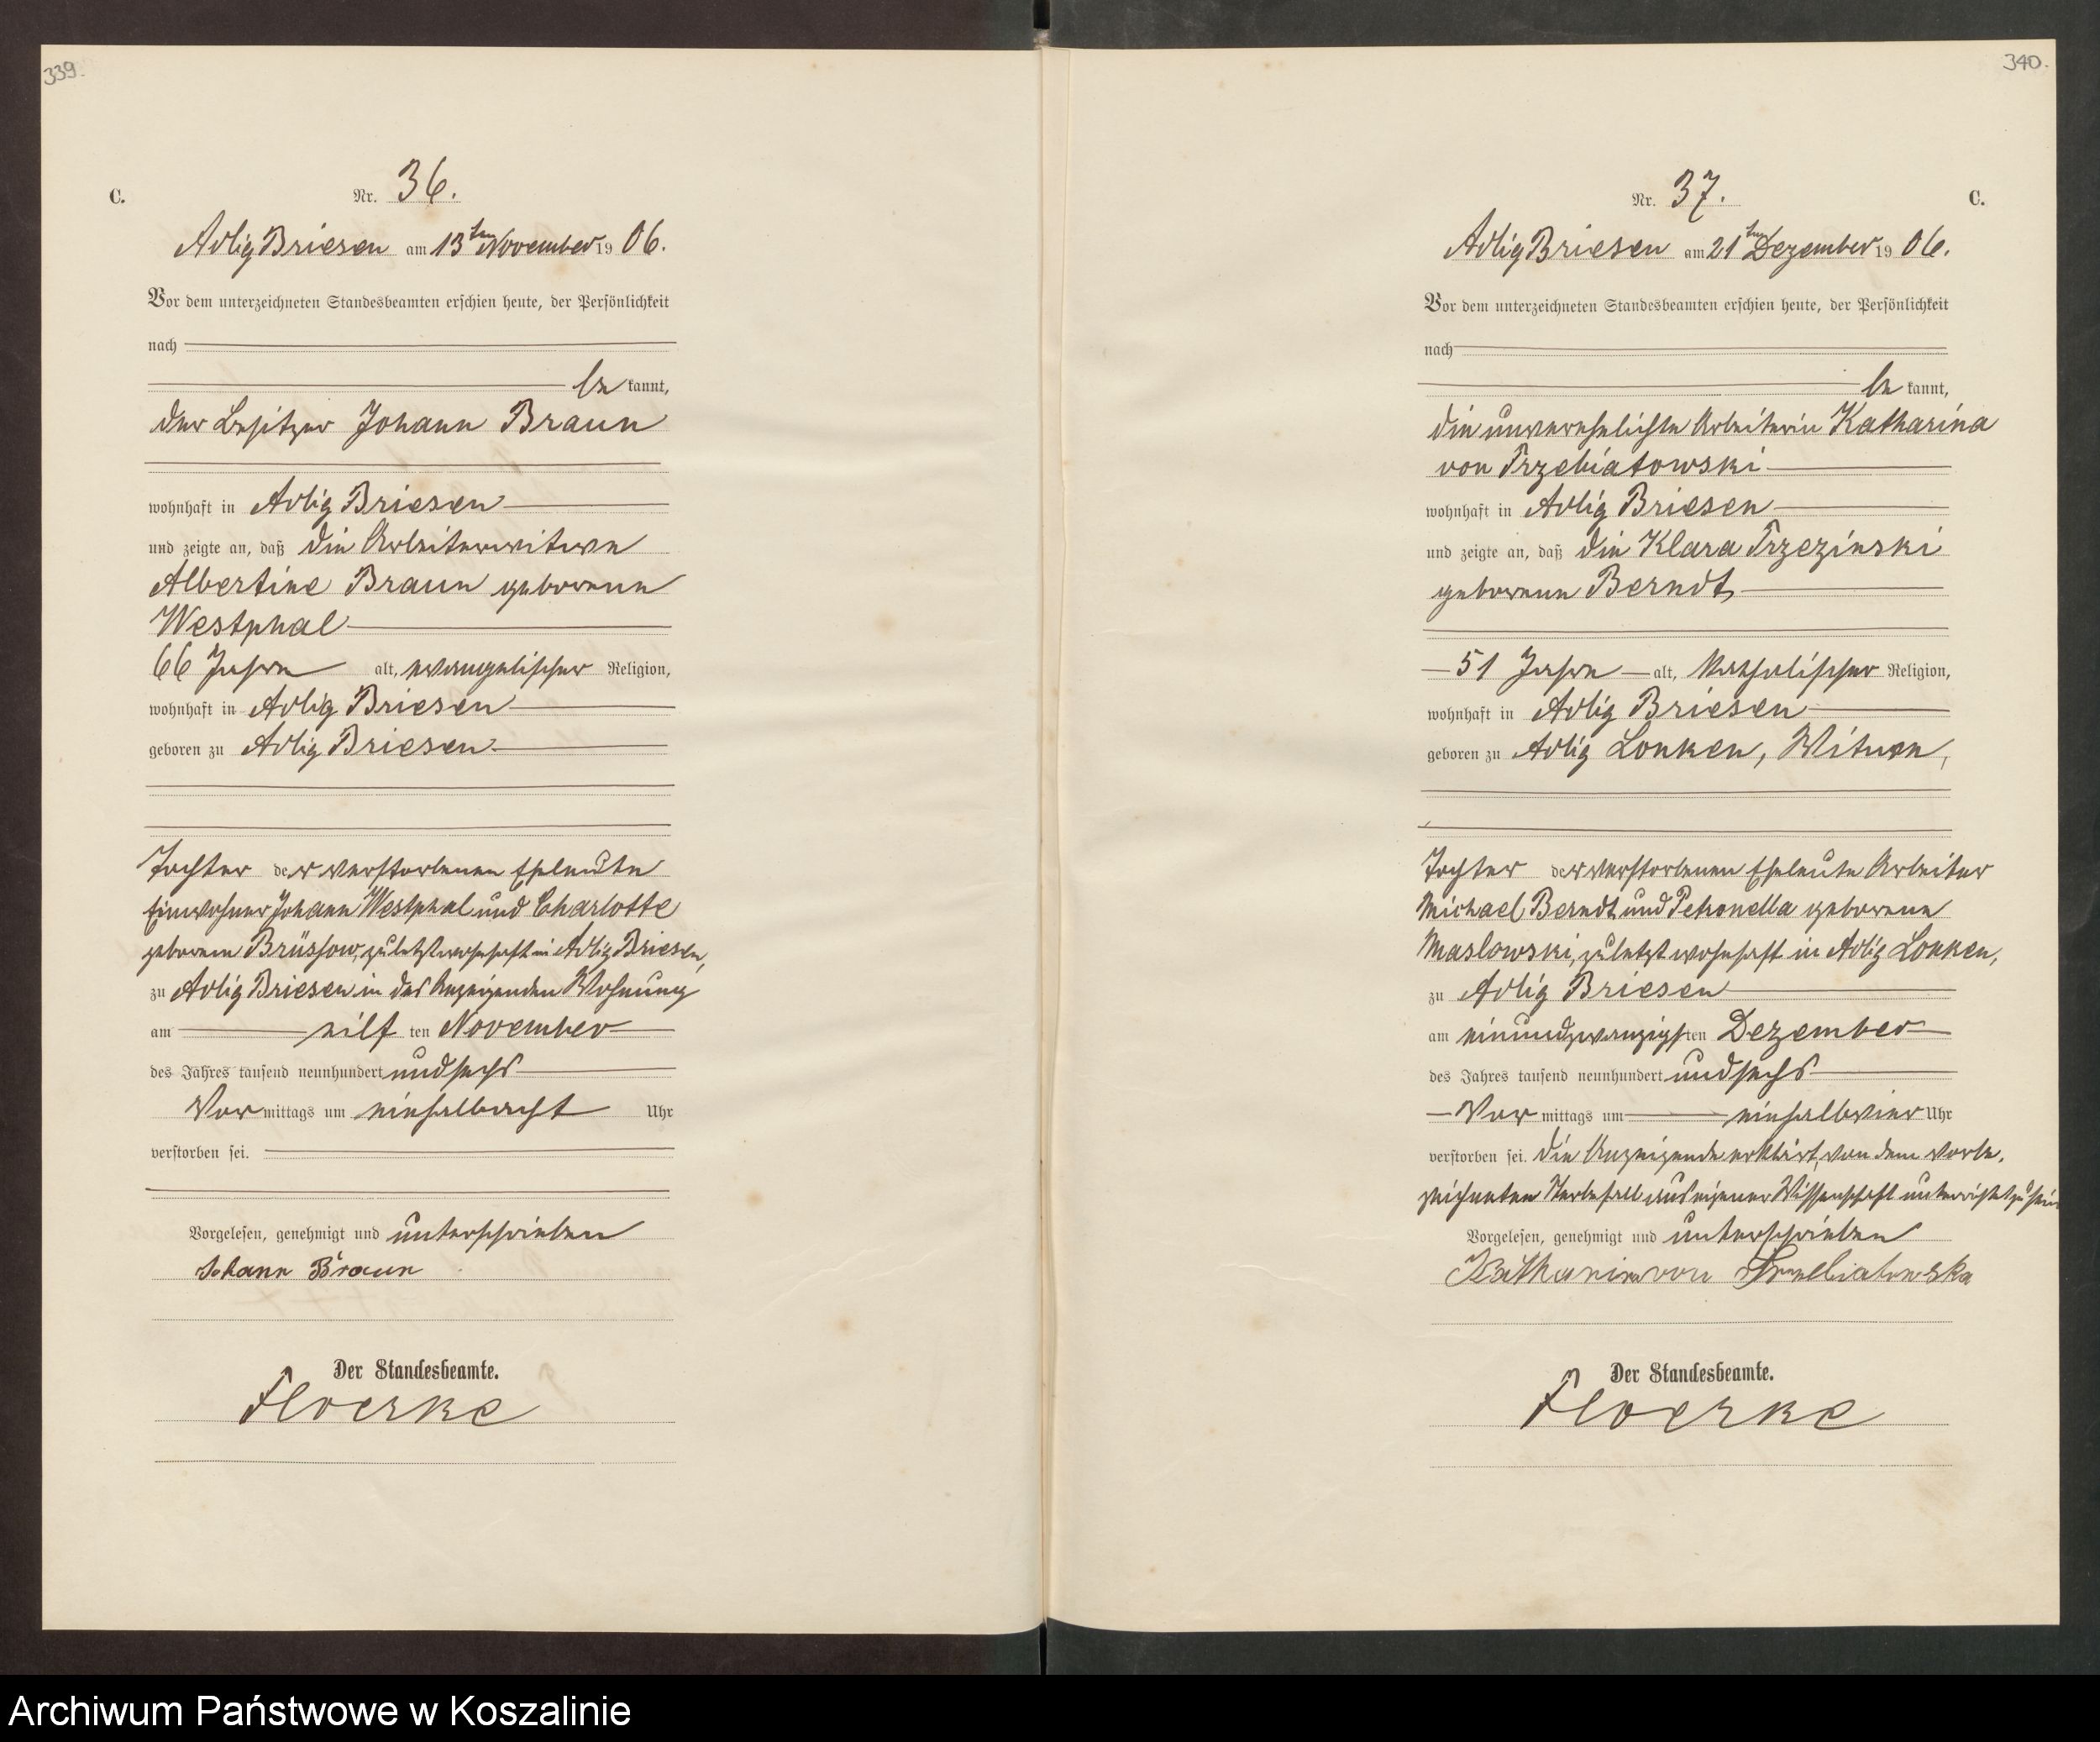 339.
C.
Nr. 36.
Adlig Briesen am 13ten November 1906.
Vor dem unterzeichneten Standesbeamten erschien heute, der Persönlichkeit
nach
be kannt,
der Besitzer Johann Braun
wohnhaft in Adlig Briesen
und zeigte an, daß die Arbeiterwitwe
Albertine Braun geborene
Westphal
66 Jahre alt, evangelischer Religion,
wohnhaft in Adlig Briesen
geboren zu Adlig Briesen
Tochter der verstorbenen Eheleute
Einwohner Johann Westphal und Charlotte
geborenen Brüssow, zuletzt wohnhaft in Adlig Briesen,
zu Adlig Briesen in des Anzeigenden Wohnung
am eilf ten November
des Jahres tausend neunhundert undsechs
Vor mittags um einhalbacht Uhr
verstorben sei.
Vorgelesen, genehmigt und unterschrieben
Johann Braun
Der Standesbeamte.
Floerke
340.
Nr. 37.
C.
Adlig Briesen am 21ten Dezember 1906.
Vor dem unterzeichneten Standesbeamten erschien heute, der Persönlichkeit
nach
be kannt,
die unverehelichte Arbeiterin Katharina
von Trzebiatowski
wohnhaft in Adlig Briesen
und zeigte an, daß die Klara Trzezinski
geborene Berndt,
51 Jahre alt, katholischer Religion,
wohnhaft in Adlig Briesen
geboren zu Adlig Lonken, Witwe,
Tochter der verstorbenen Eheleute Arbeiter
Michael Berndt und Petronella geborene
Maslowski, zuletzt wohnhaft in Adlig Lonken,
zu Adlig Briesen
am einundzwanzigsten Dezember
des Jahres tausend neunhundert undsechs
Vor mittags um einhalbvier Uhr
verstorben sei. Die Anzeigende erklärt, von dem vorbe-
zeichneten Sterbefall aus eigener Wissenschaft unterrichtet zu sein
Vorgelesen, genehmigt und unterschrieben
Katharina von Trzebiatowska
Der Standesbeamte.
Floerke
Archiwum Państwowe w Koszalinie